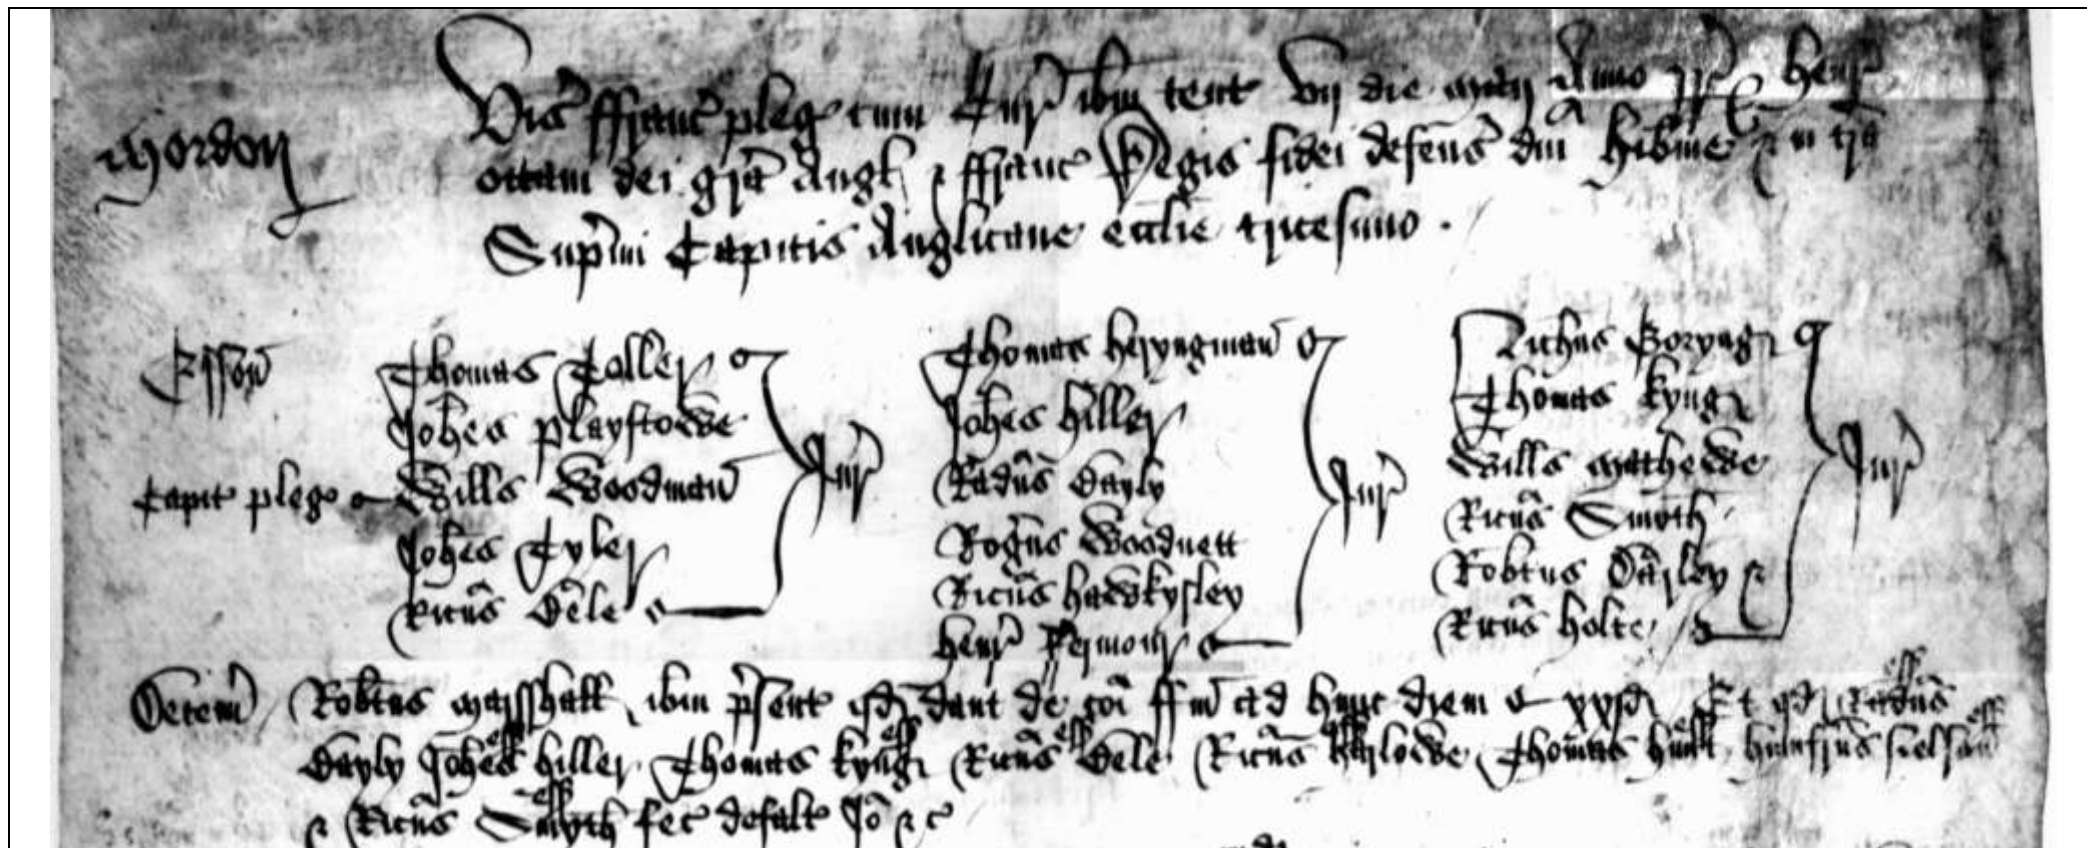 Mordon
Vis ffranc pleg cum Cur ibm tent vij die Maij Anno rr Henr
octavi dei gra Angl & ffranc Regis fidei defens dni hibnie & in tra
Supmi Capitis Anglicane ecclie tricesimo .
Esson
Capit pleg
Thomas Toller
Johes Playstowe
Wills Woodman
Johes Tyler
Ricus Dele
Jur
Thomas heryngman
Johes hiller
Radus Dayly
Rogus Woodnett
Ricus hawkysley
henr Permour
Jur
Richus Goryng
Thomas kyng
Wills Mathewe
Ricus Smyth
Robtus
Ricus holte
Jur
Decem Robtus Marshall ibm psent qd dant de coi ffin ad hunc diem Et qd Radus ess
Dayly Johes ess hiller Thomas kyng ess Ricus ess Dele Ricus ess Thomas ess hunt ess
& Ricus Smyth ess fec defalt Io &c